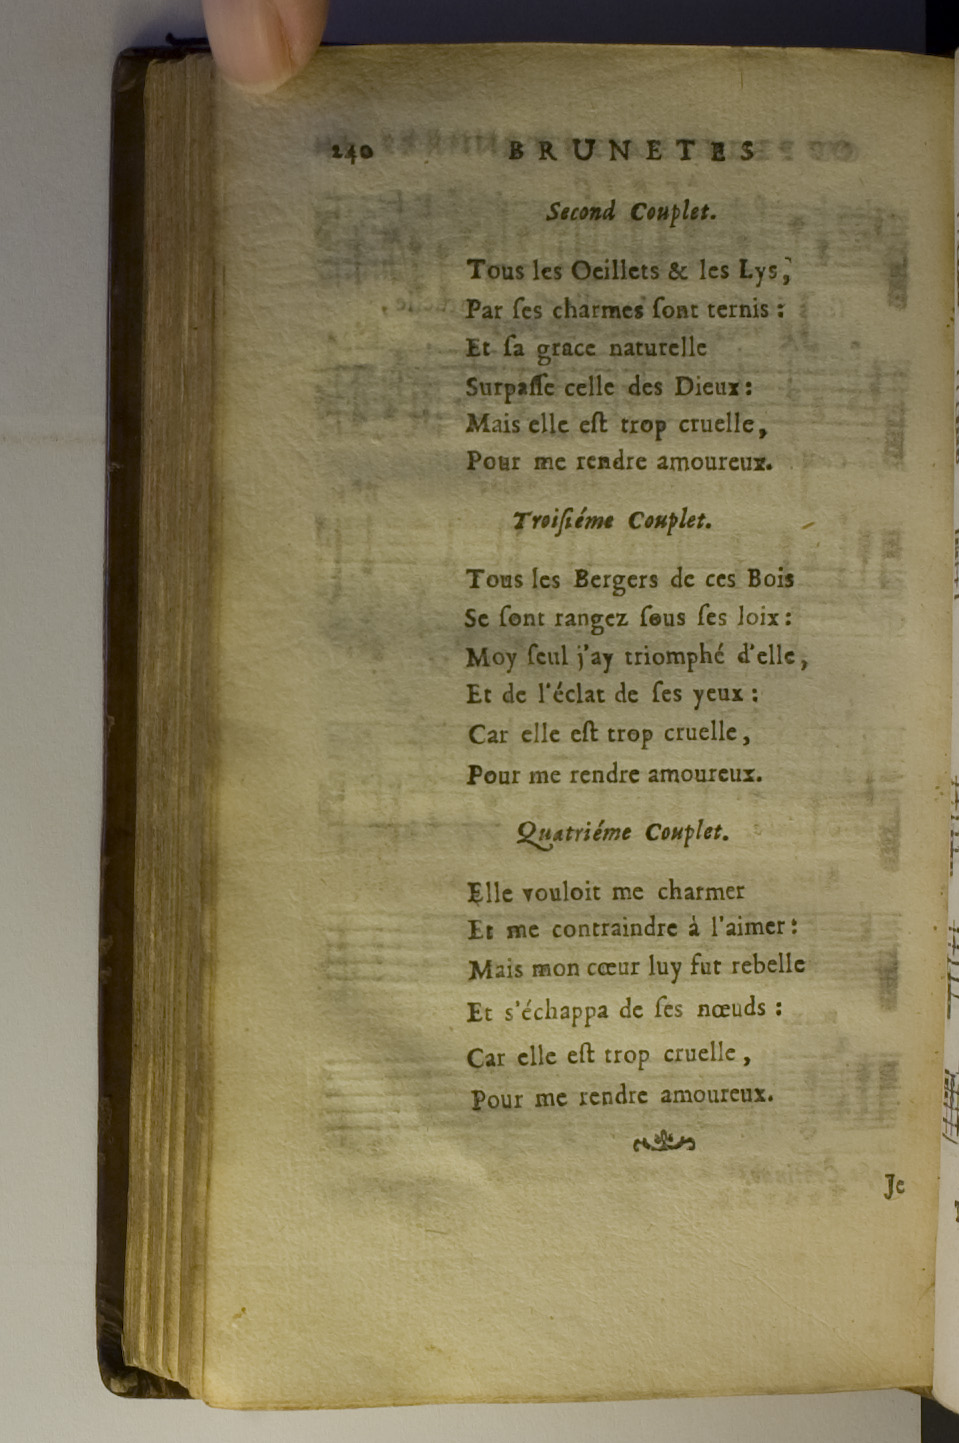 240 BRUNETES
Second Couplet.
Tous les Oeillets & les Lys,
Par ſes charmes ſont ternis :
Et ſa grace naturelle
Surpaſſe celle des Dieux :
Mais elle eſt trop cruelle,
Pour me rendre amoureux.
Troiſiéme Couplet.
Tous les Bergers de ces Bois
Se ſont rangez ſous ſes loix :
Moy ſeul j'ay triomphé d'elle,
Et de l'éclat de ſes yeux :
Car elle eſt trop cruelle,
Pour me rendre amoureux.
Quatriéme Couplet.
Elle vouloit me charmer
Et me contraindre à l'aimer :
Mais mon cœur luy fut rebelle
Et s'échappa de ſes nœuds :
Car elle eſt trop cruelle,
Pour me rendre amoureux.
Je